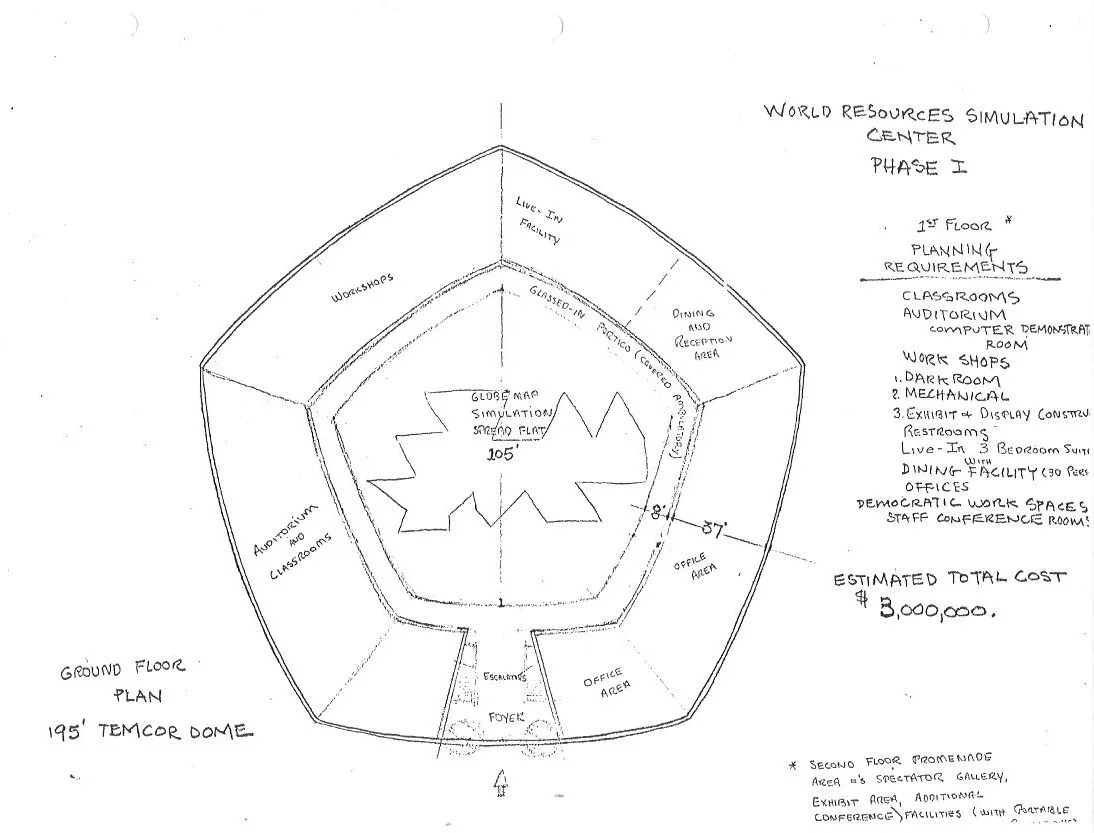 WORLD RESOURCES SIMULATION
CENTER
PHASE I
1ST FLOOR *
PLANNING
REQUIREMENTS
CLASSROOMS
AUDITORIUM
COMPUTER DEMONSTRAT
ROOM
WORK SHOPS
1. DARKROOM
2. MECHANICAL
3. EXHIBIT + DISPLAY CONSTRU
RESTROOMS
LIVE-IN 3 BEDROOM SUIT
DINING WITH FACILITY (30 PERS
OFFICES
DEMOCRATIC WORK SPACES
STAFF CONFERENCE ROOMS
ESTIMATED TOTAL COST
$ 3,000,000.
LIVE-IN
FACILITY
WORKSHOPS
GLASSED-IN PORTICO (COVERED AMBULATORY)
DINING
AND
RECEPTION
AREA
GLOBE MAP
SIMULATION
SPREAD FLAT
105'
8'
37'
AUDITORIUM
AND
CLASSROOMS
OFFICE
AREA
ESCALATORS
OFFICE
AREA
FOYER
GROUND FLOOR
PLAN
195' TEMCOR DOME
* SECOND FLOOR PROMENADE
AREA ='S SPECTATOR GALLERY,
EXHIBIT AREA, ADDITIONAL
CONFERENCE FACILITIES (WITH PORTABLE